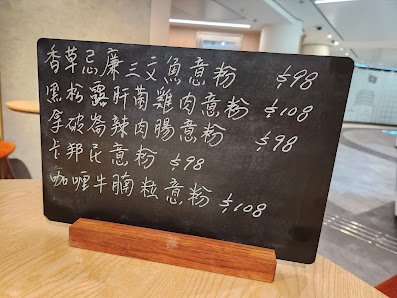 香草忌廉三文魚意粉 $98
黑松露肝菌雞肉意粉 $108
拿破崙辣肉腸意粉 $98
卡邦尼意粉 $98
咖喱牛腩粒意粉 $108